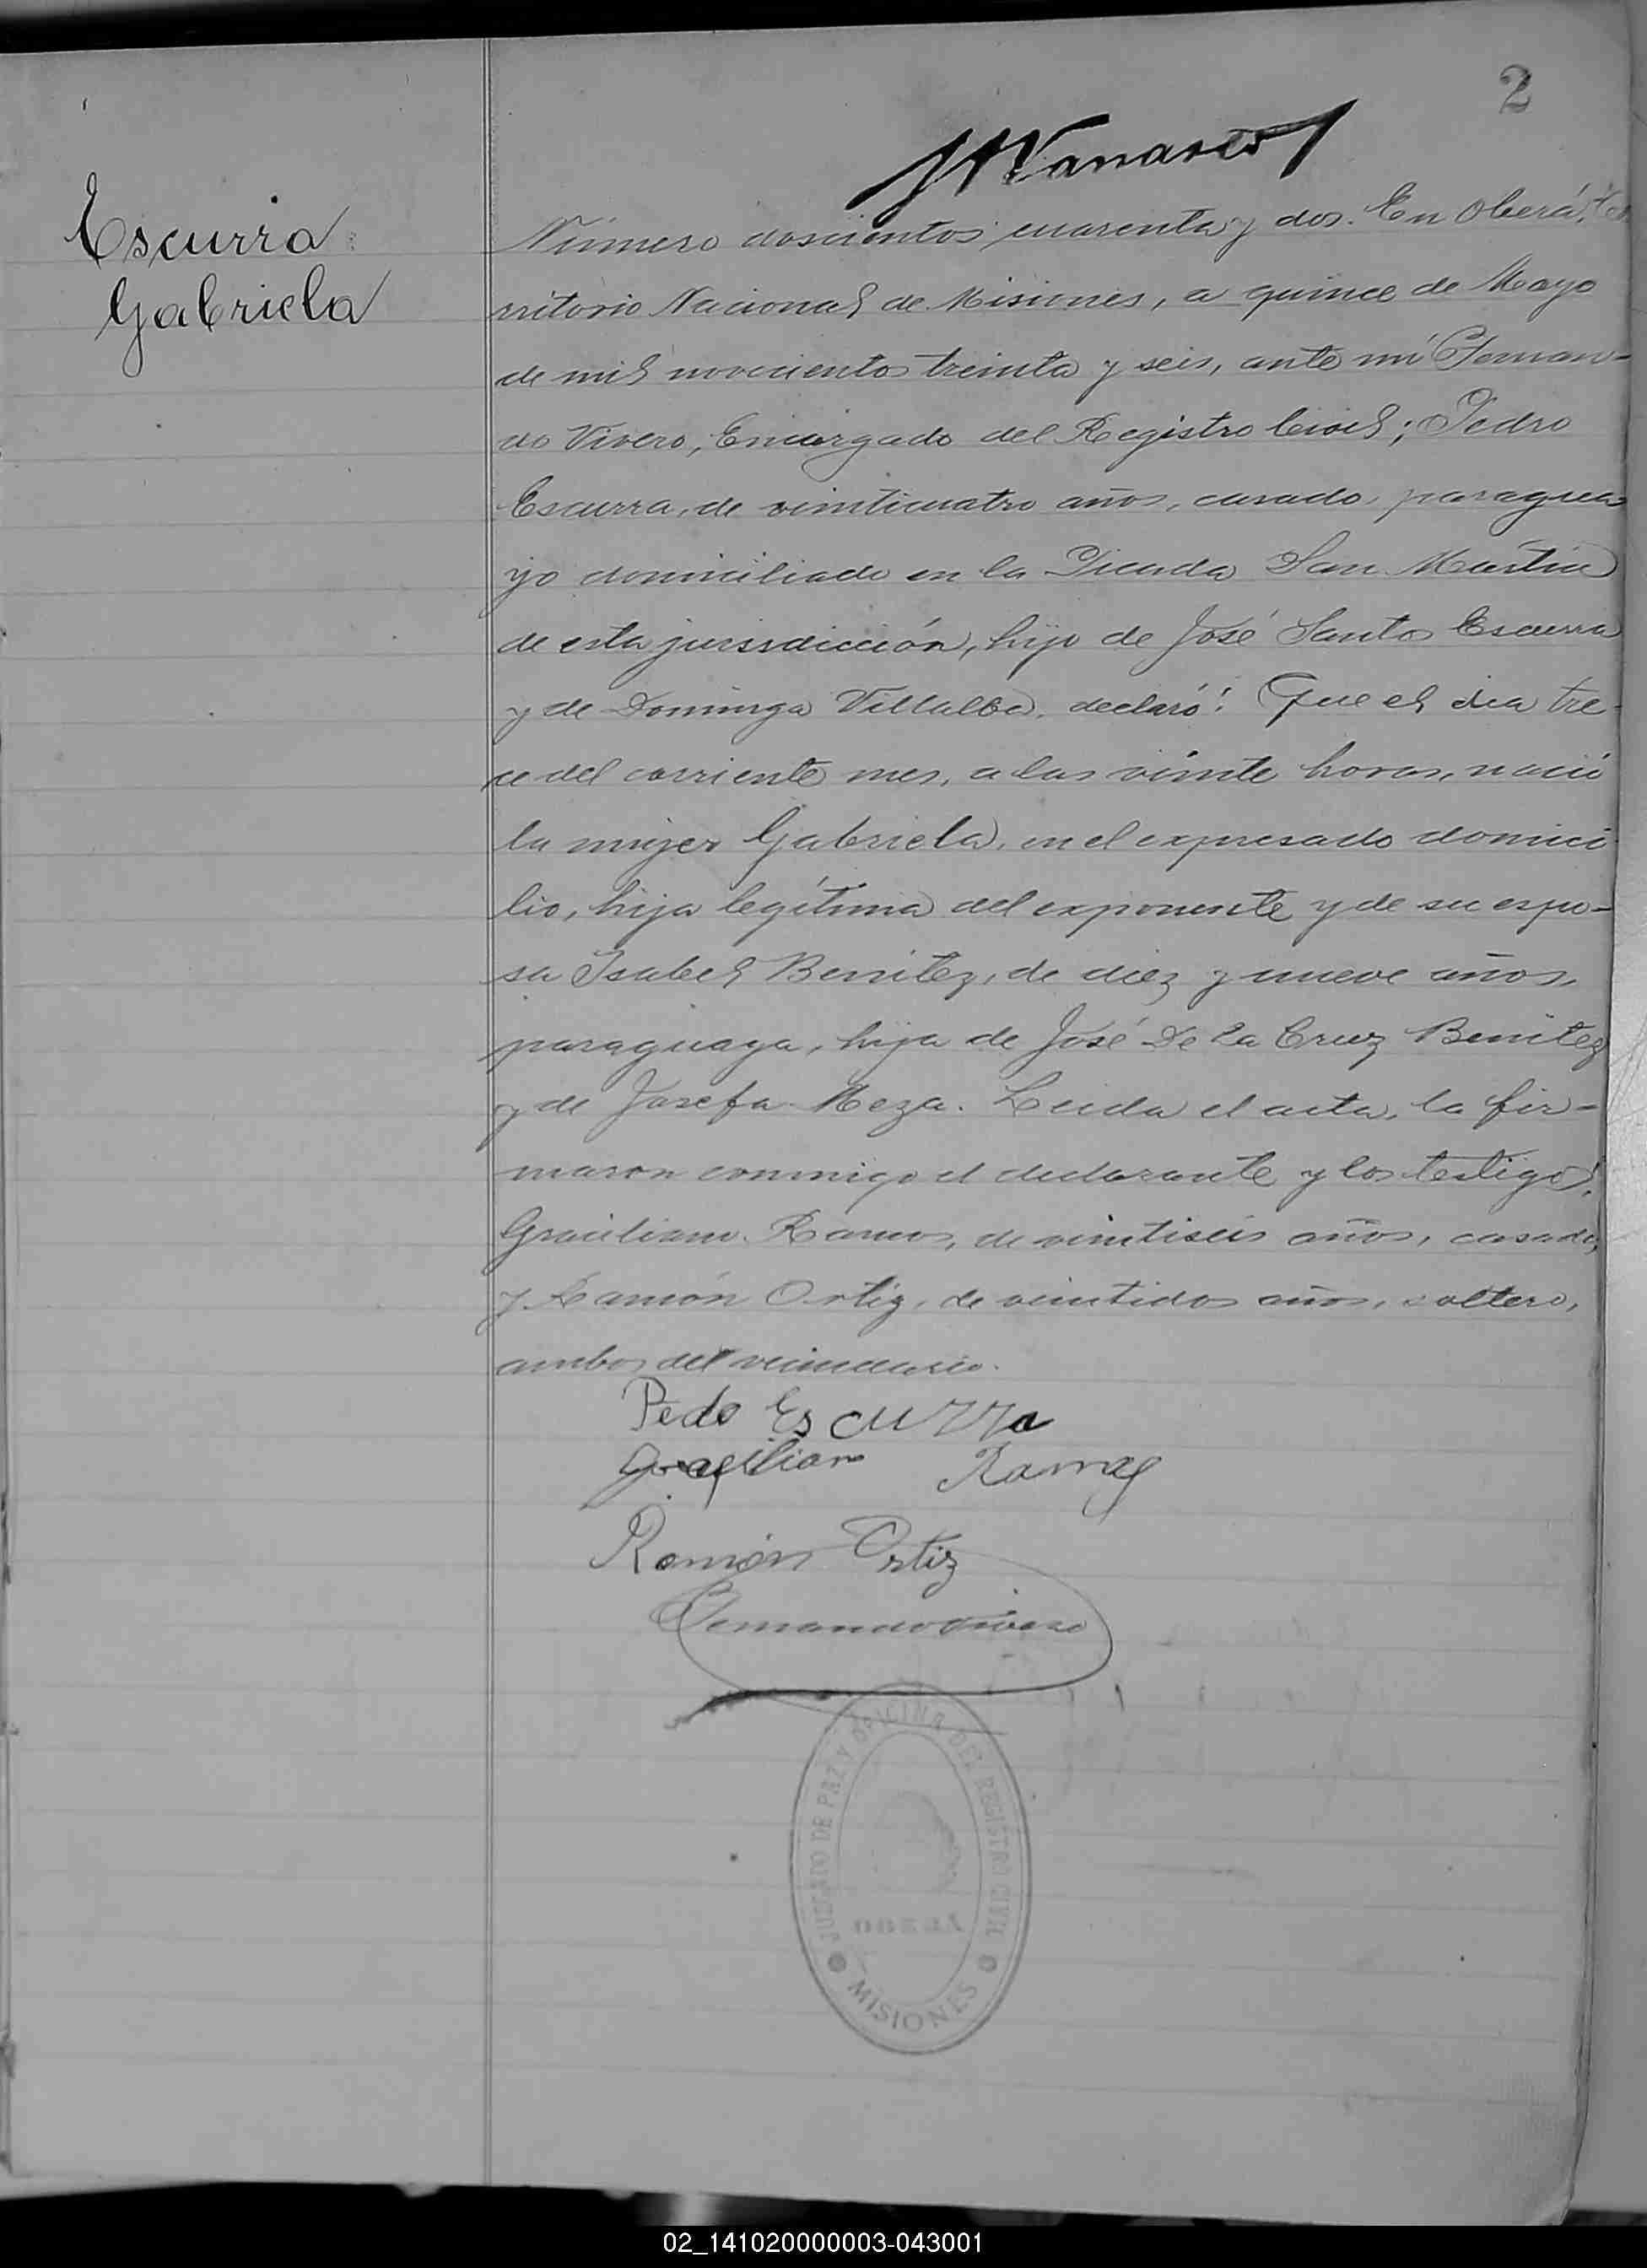 2
Escurra
Gabriela
Número doscientos cuarenta y dos. En Oberá, Te-
rritorio Nacional de Misiones, a quince de Mayo
de mil novecientos treinta y seis, ante mí Fernan-
do Vivero, Encargado del Registro Civil; Pedro
Escurra, de veinticuatro años, casado, paragua
yo domiciliado en la Picada San Martín
de esta jurisdicción, hijo de José Santos Escurra
y de Dominga Villalba, declaró: Que el dia tre-
ce del corriente mes, a las veinte horas, nació
la mujer Gabriela, en el expresado domici
lio, hija legítima del exponente y de su espo-
sa Isabel Benitez, de diez y nueve años,
paraguaya, hija de José De la Cruz Benitez
y de Josefa Meza. Leida el acta, la fir-
maron conmigo el declarante y los testigos,
Graciliano Ramos, de veintiseis años, casado,
y Ramón Ortiz, de veintidos años, soltero,
ambos del vecindario.
Pedo Escurra
Ramos
Ramón Ortiz
Fernando Vivero
JUZGADO DE PAZ Y OFICINA DEL REGISTRO CIVIL
OBERA
MISIONES
02_141020000003-043001